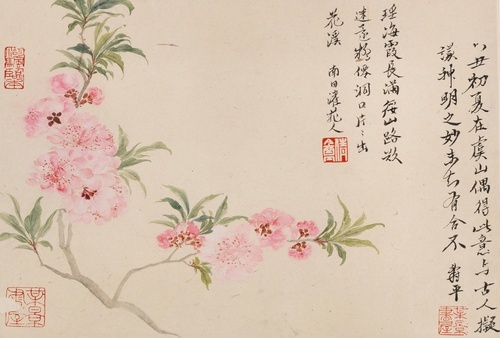 乙丑初夏在虞山偶得此意与古人擬
議神明之妙未知有合不 壽平
瑶海霞長滿綏山路欲
迷遠 洞口片片出
花溪 南田灌花人